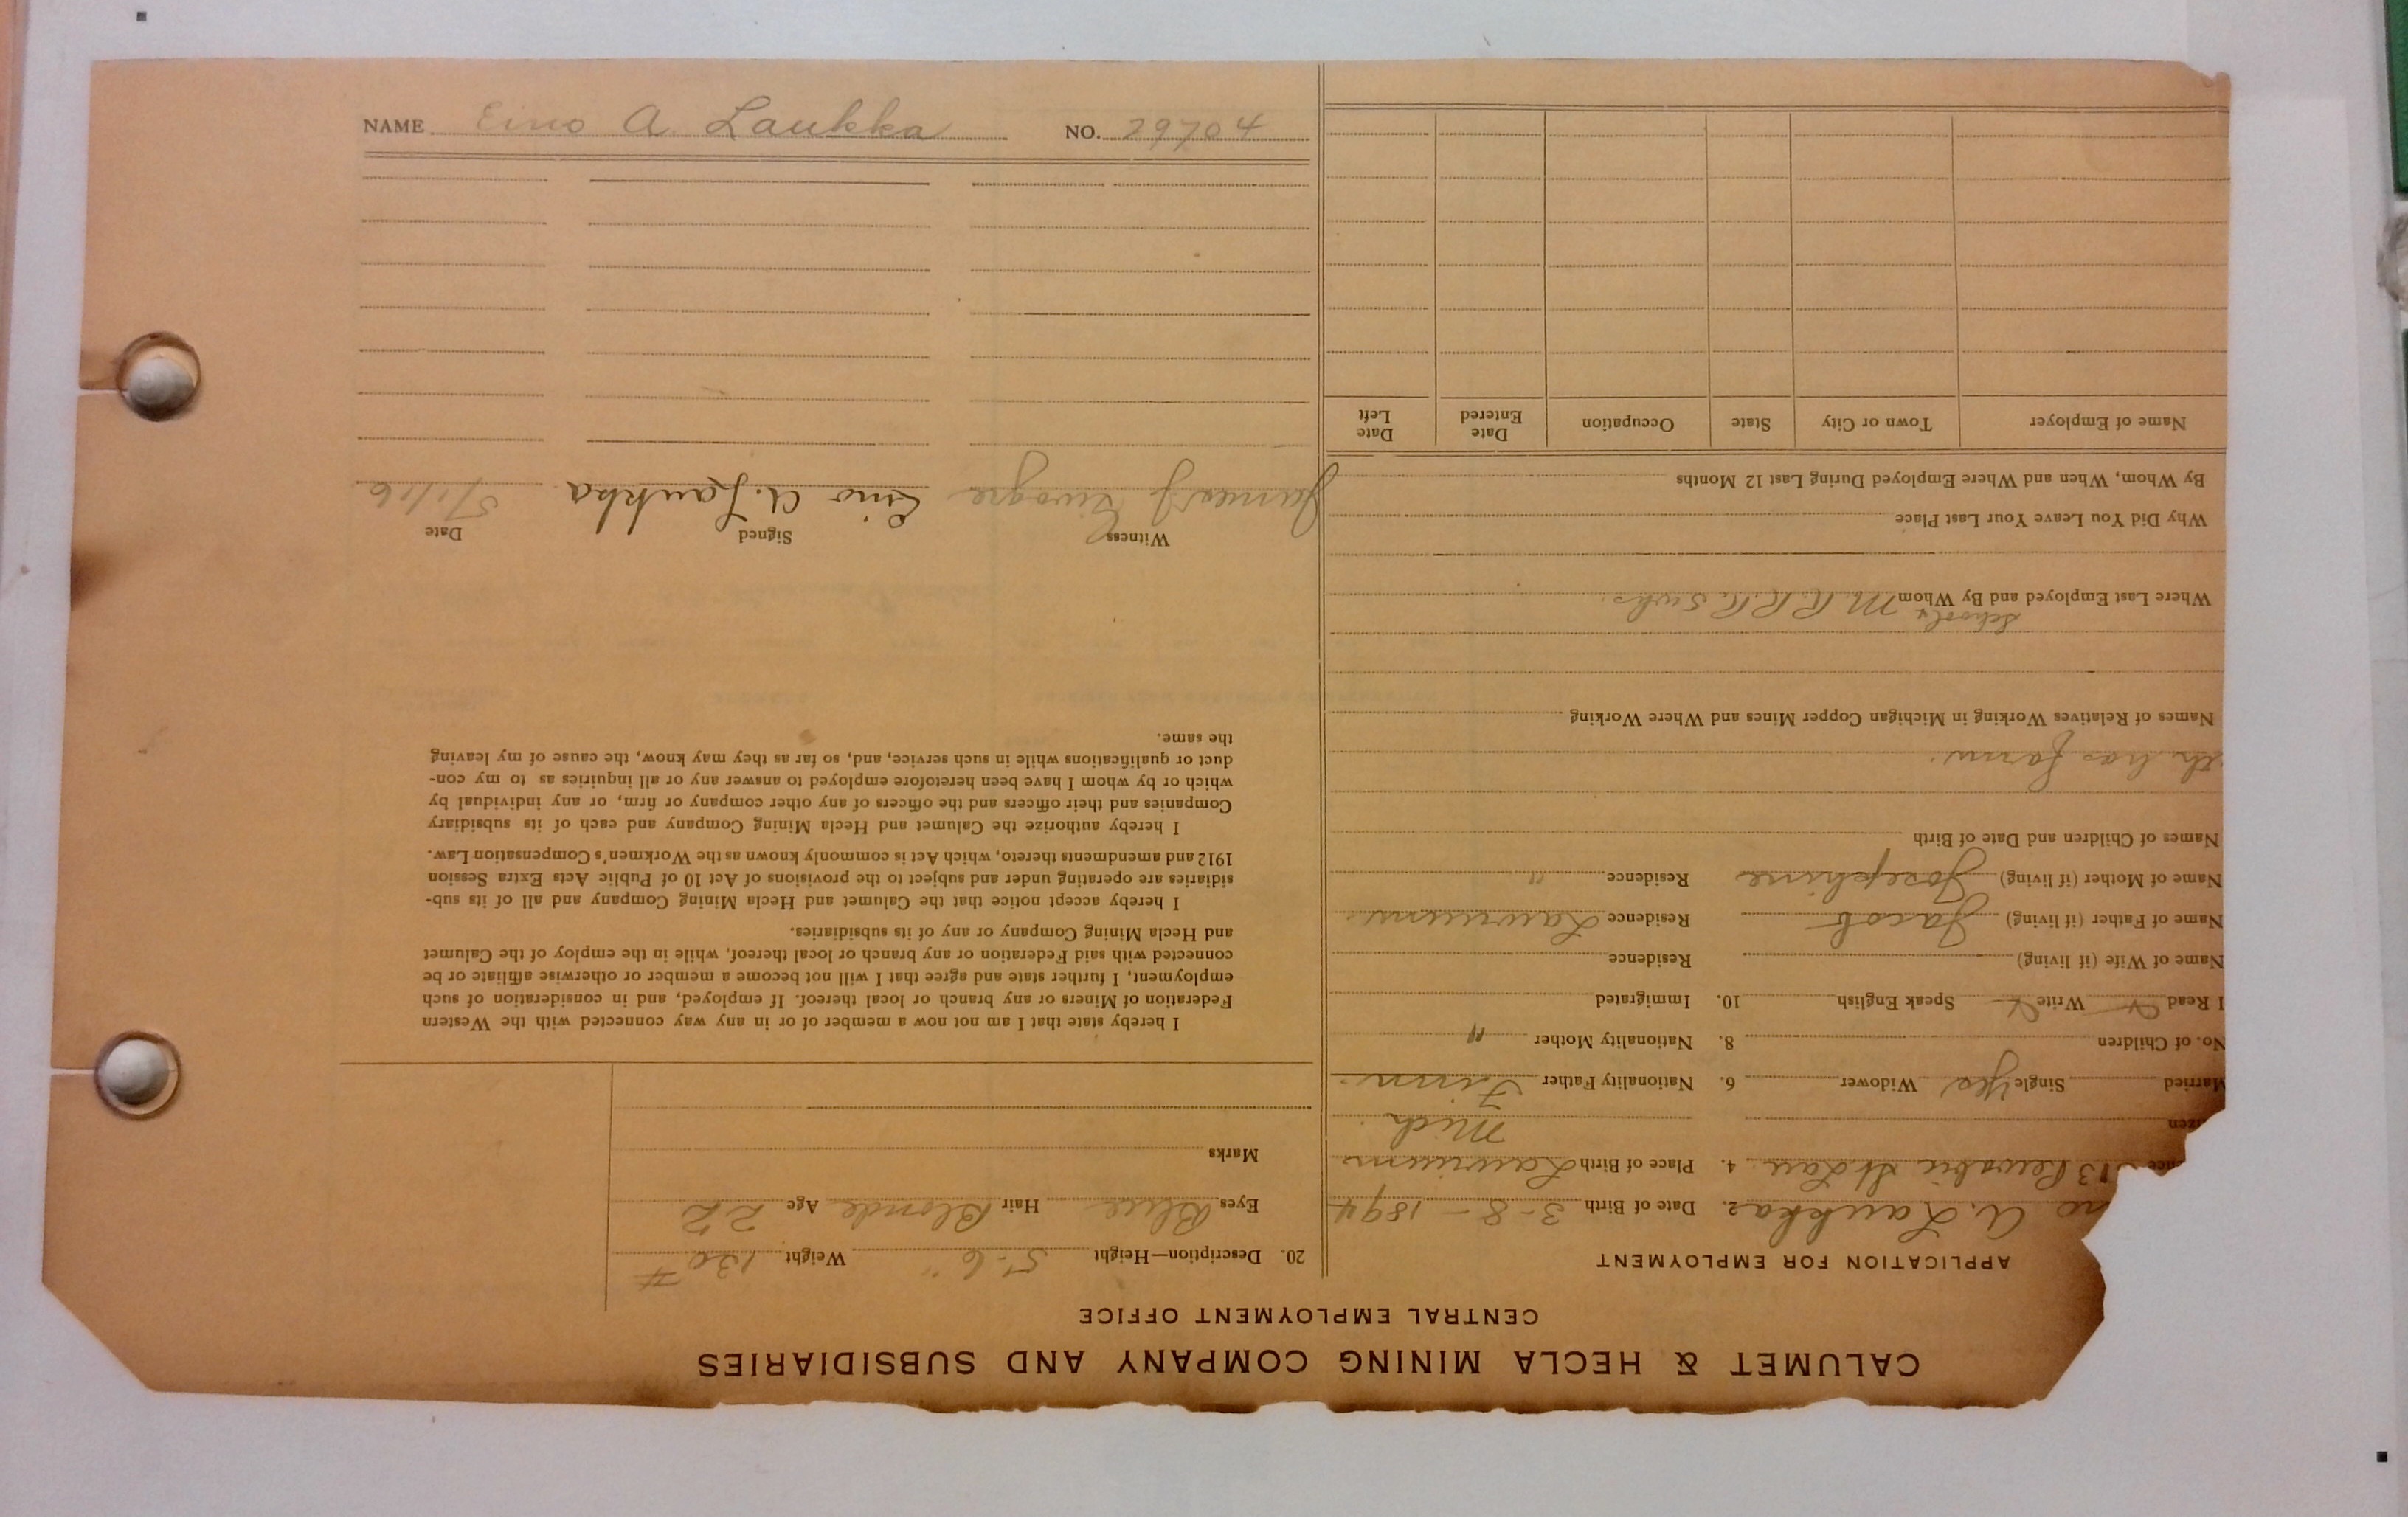 CALUMET & HECLA MINING COMPANY AND SUBSIDIARIES
CENTRAL EMPLOYMENT OFFICE
APPLICATION FOR EMPLOYMENT
no A. Laukka 2. Date of Birth 3-8-1894
13 Pewabic St Lau 4. Place of Birth Laurium
Mich.
Married Single Yes Widower 6. Nationality Father Finn.
No. of Children 8. Nationality Mother "
I Read Write Speak English 10. Immigrated
Name of Wife (if living) Residence
Name of Father (if living) Jacob Residence Laurium.
Name of Mother (if living) Josephine Residence "
Names of Children and Date of Birth
has farm.
Names of Relatives Working in Michigan Copper Mines and Where Working
School &
Where Last Employed and By Whom M.R.R.R.
Why Did You Leave Your Last Place
By Whom, When and Where Employed During Last 12 Months
Name of Employer Town or City State Occupation Date Entered Date Left
20. Description—Height 5-6" Weight 130 #
Eyes Blue Hair Blonde Age 22
Marks
I hereby state that I am not now a member of or in any way connected with the Western
Federation of Miners or any branch or local thereof. If employed, and in consideration of such
employment, I further state and agree that I will not become a member or otherwise affiliate or be
connected with said Federation or any branch or local thereof, while in the employ of the Calumet
and Hecla Mining Company or any of its subsidiaries.
I hereby accept notice that the Calumet and Hecla Mining Company and all of its sub-
sidiaries are operating under and subject to the provisions of Act 10 of Public Acts Extra Session
1912 and amendments thereto, which Act is commonly known as the Workmen's Compensation Law.
I hereby authorize the Calumet and Hecla Mining Company and each of its subsidiary
Companies and their officers and the officers of any other company or firm, or any individual by
which or by whom I have been heretofore employed to answer any or all inquiries as to my con-
duct or qualifications while in such service, and, so far as they may know, the cause of my leaving
the same.
Witness Signed Date
James J Eino A. Laukka 5/1/16
NAME Eino A. Laukka NO. 29704